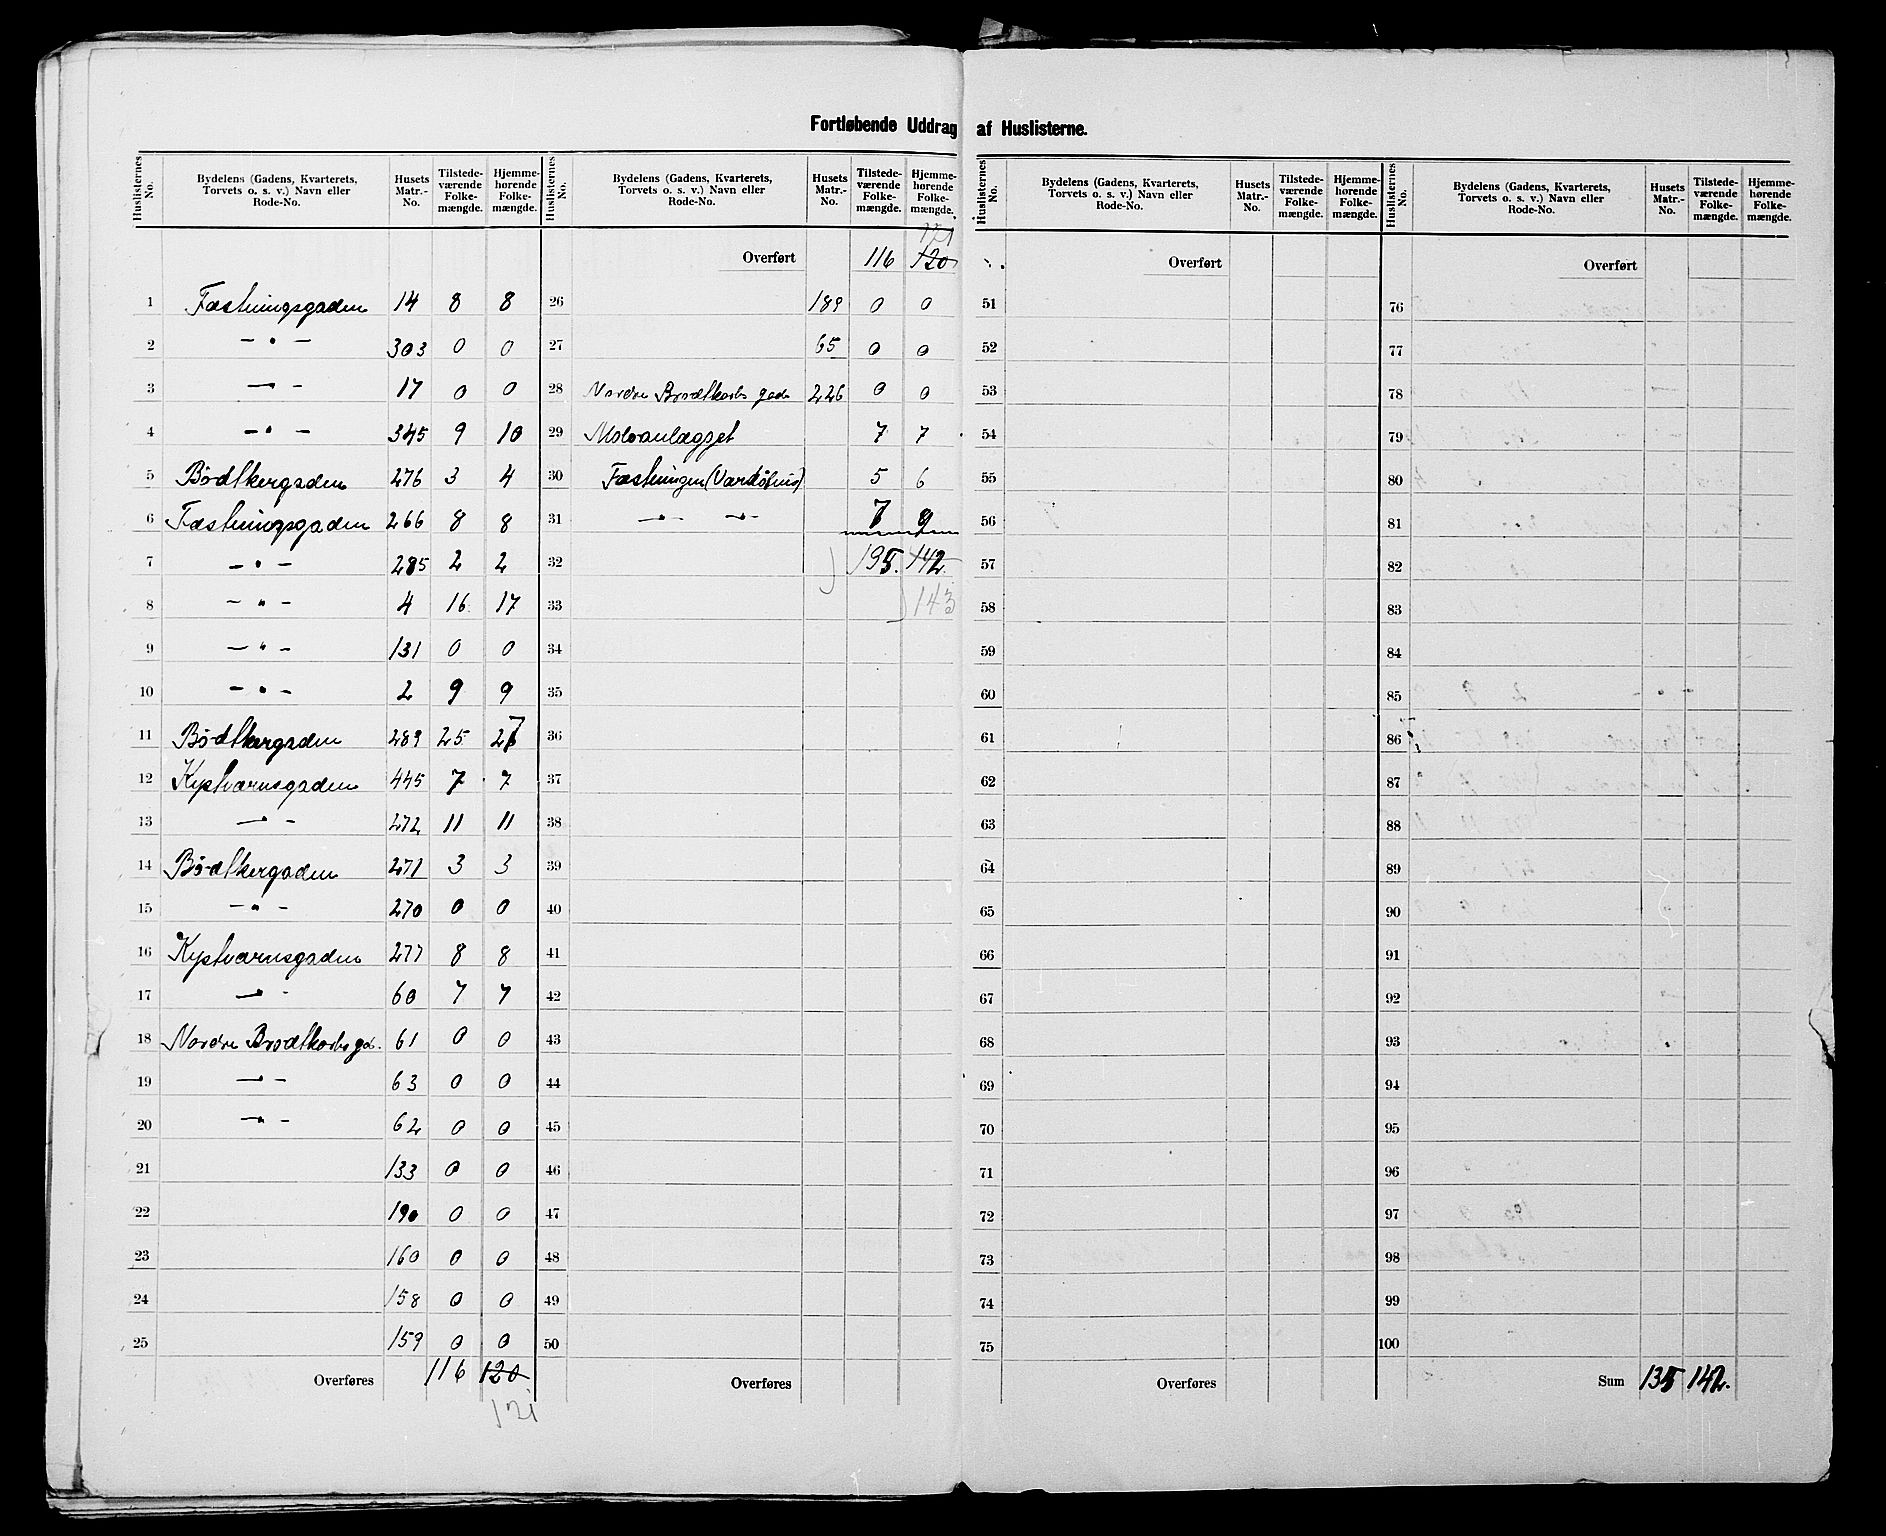 Fortløbende Uddrag af Huslisterne.
Huslisternes No. Bydelens (Gadens, Kvarterets, Torvets o. s. v.) Navn eller Rode-No. Husets Matr.-No. Tilstede-værende Folke-mængde. Hjemme-hørende Folke-mængde.
Huslisternes No. Bydelens (Gadens, Kvarterets, Torvets o. s. v.) Navn eller Rode-No. Husets Matr.-No. Tilstede-værende Folke-mængde. Hjemme-hørende Folke-mængde.
Huslisternes No. Bydelens (Gadens, Kvarterets, Torvets o. s. v.) Navn eller Rode-No. Husets Matr.-No. Tilstede-værende Folke-mængde. Hjemme-hørende Folke-mængde.
Huslisternes No. Bydelens (Gadens, Kvarterets, Torvets o. s. v.) Navn eller Rode-No. Husets Matr.-No. Tilstede-værende Folke-mængde. Hjemme-hørende Folke-mængde.
1 Fæstningsgaden 14 8 8
2 - " - 303 0 0
3 - " - 17 0 0
4 - " - 345 9 10
5 Bödtkergaden 276 3 4
6 Fæstningsgaden 266 8 8
7 - " - 285 2 2
8 - " - 4 16 17
9 - " - 131 0 0
10 - " - 2 9 9
11 Bödtkergaden 289 25 27
12 Kystværnsgaden 445 7 7
13 - " - 272 11 11
14 Bödtkergaden 271 3 3
15 - " - 270 0 0
16 Kystværnsgaden 277 8 8
17 - " - 60 7 7
18 Nordre Brodtkorbs gd. 61 0 0
19 - " - 63 0 0
20 - " - 62 0 0
21 133 0 0
22 190 0 0
23 160 0 0
24 158 0 0
25 159 0 0
Overføres 116 120
121
121
Overført 116 120
26 189 0 0
27 65 0 0
28 Nordre Brodtkorbs gade 226 0 0
29 Moloanlægget 7 7
30 Fæstningen (Vardöhus) 5 6
31 - " - - " - 7 9
32 135. 142
33 143
34
35
36
37
38
39
40
41
42
43
44
45
46
47
48
49
50
Overføres
Overført
51
52
53
54
55
56
57
58
59
60
61
62
63
64
65
66
67
68
69
70
71
72
73
74
75
Overføres
Overført
76
77
78
79
80
81
82
83
84
85
86
87
88
89
90
91
92
93
94
95
96
97
98
99
100
Sum 135 142.